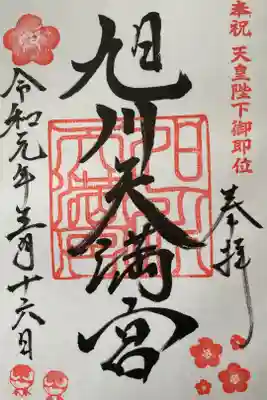 奉祝 天皇陛下御即位
奉拝
旭川天満宮
令和元年五月十六日